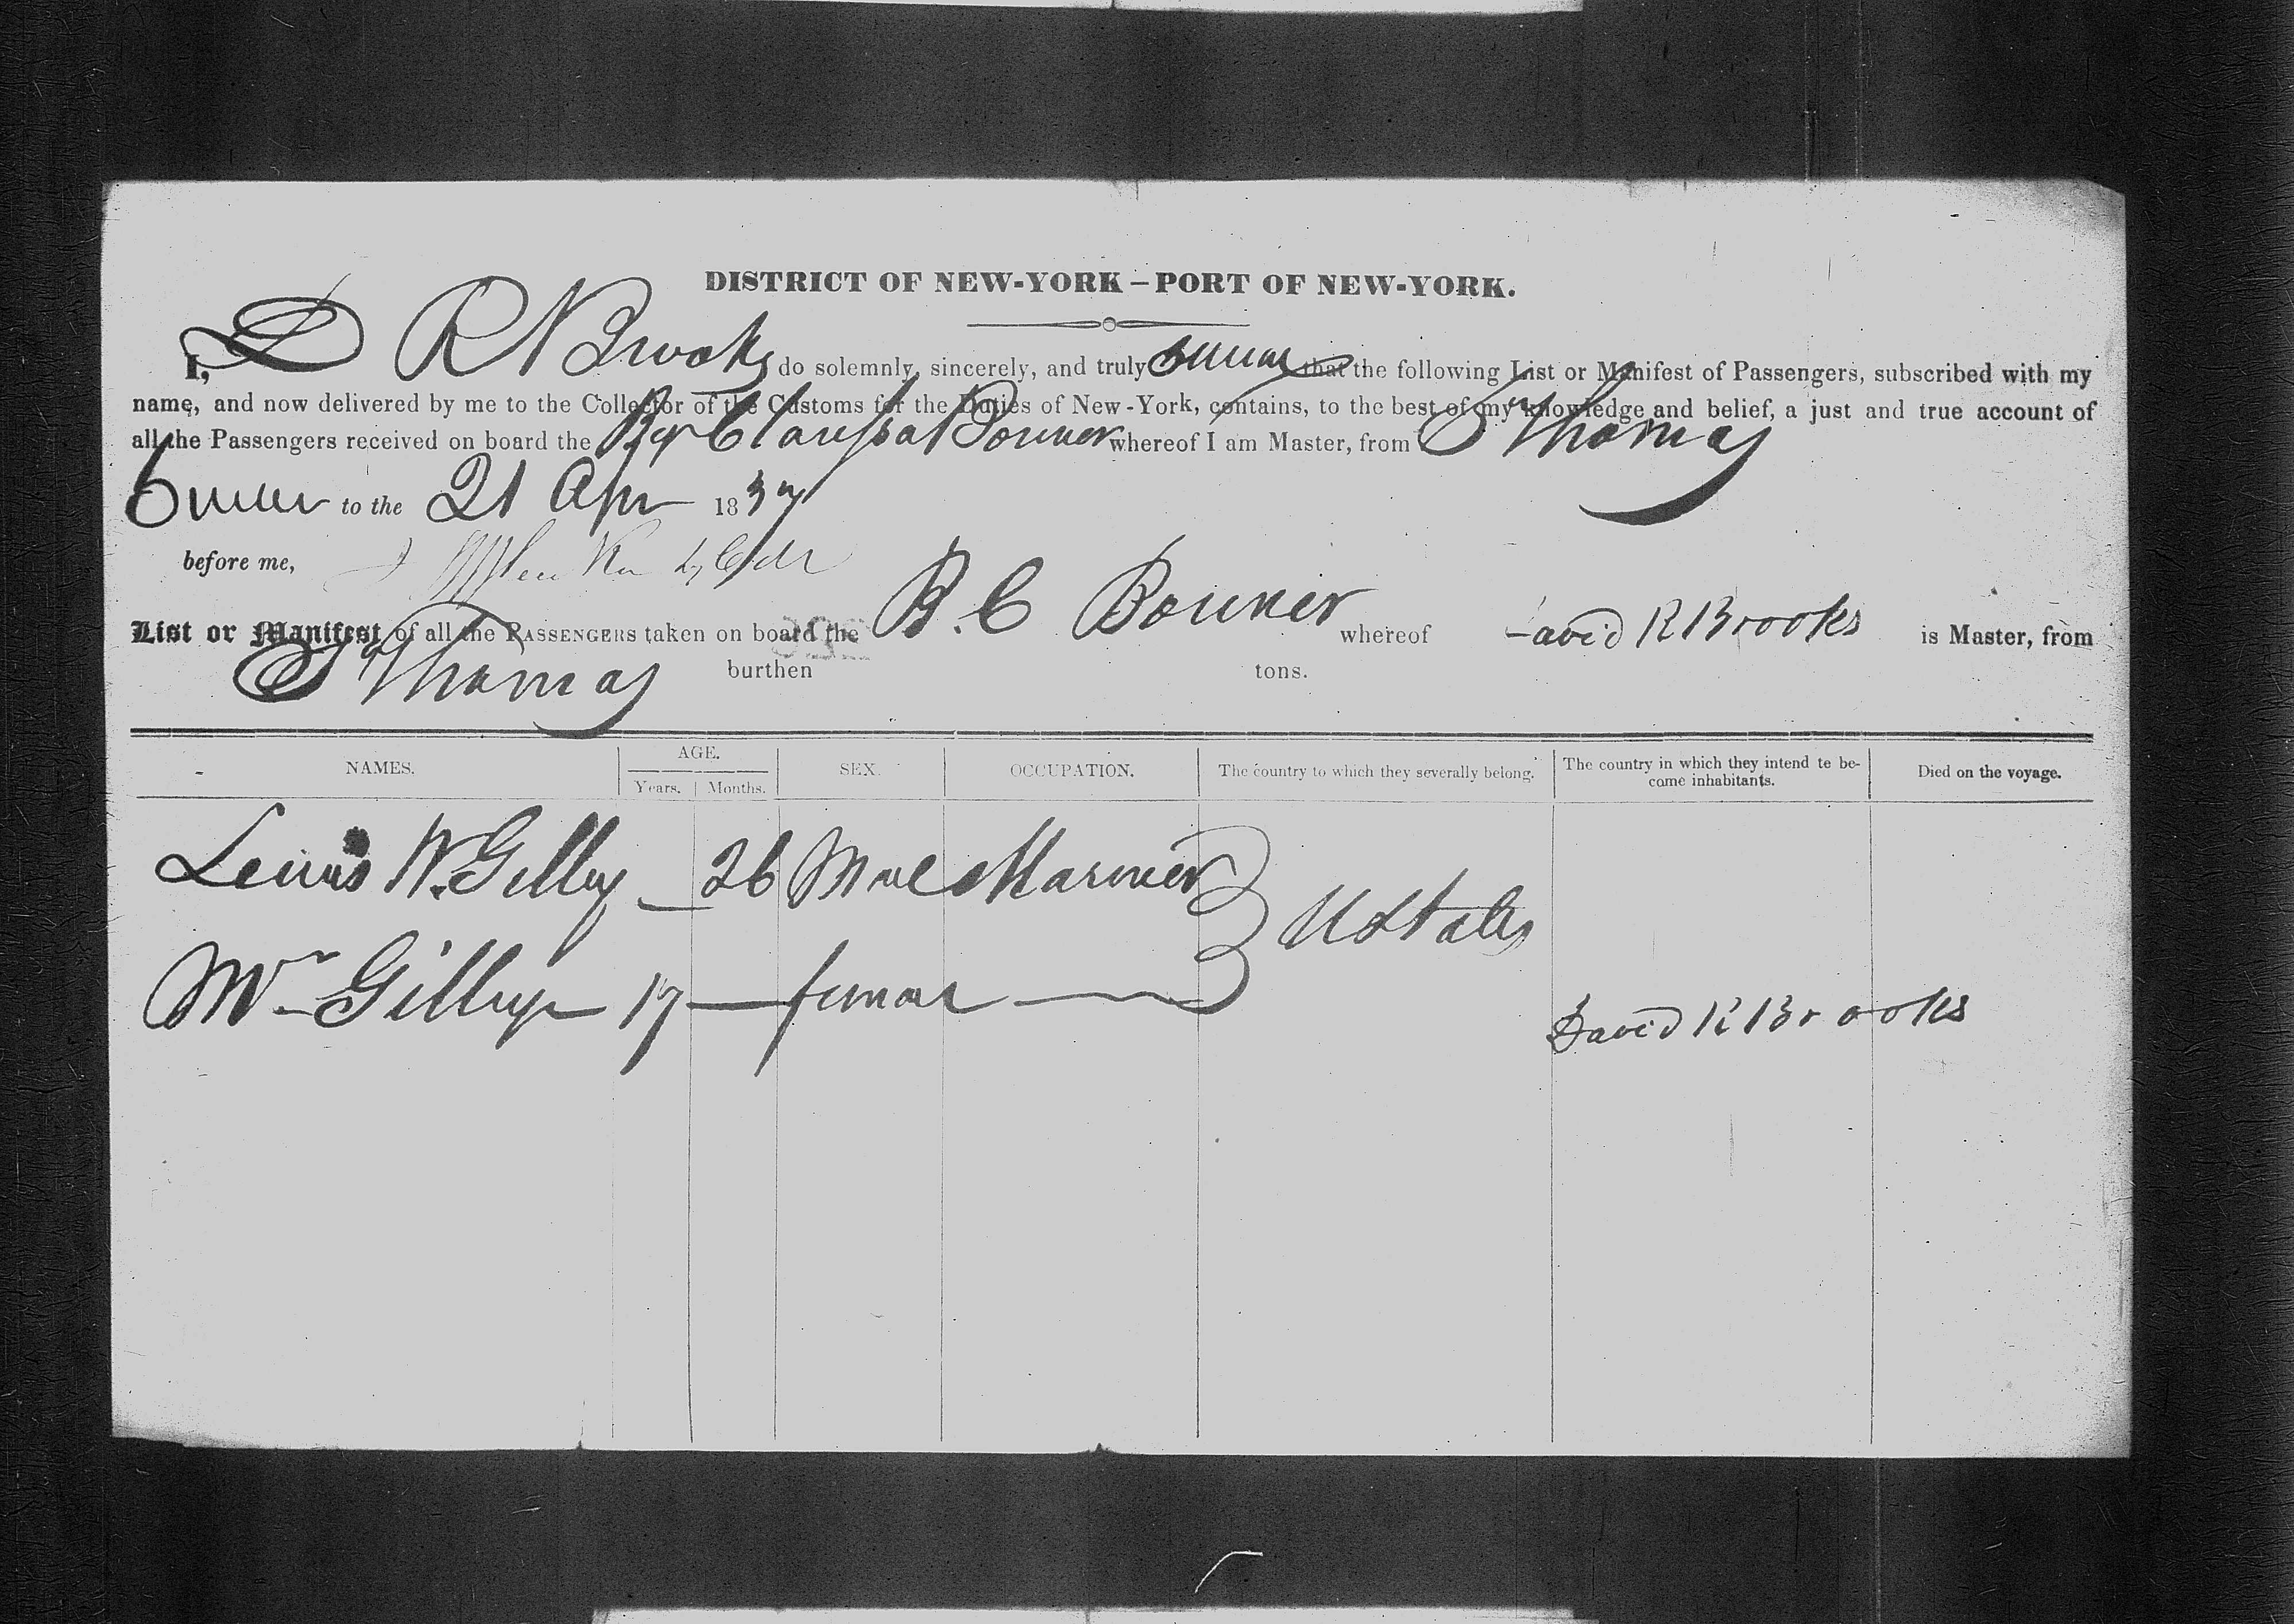 DISTRICT OF NEW-YORK – PORT OF NEW-YORK.
I, D R N Brooks do solemnly, sincerely, and truly swear that the following List or Manifest of Passengers, subscribed with my
name, and now delivered by me to the Collector of the Customs for the Duties of New-York, contains, to the best of my knowledge and belief, a just and true account of
all the Passengers received on board the Bonner whereof I am Master, from St Thomas
Sworn to the 21 Apr 1837
before me,
List or Manifest of all the PASSENGERS taken on board the B. C Bonner whereof David R Brooks is Master, from
St Thomas burthen tons.
NAMES. AGE. Years. Months. SEX. OCCUPATION. The country to which they severally belong. The country in which they intend te become inhabitants. Died on the voyage.
Lewis W. Gilley 26 Male Mariner
U States
Mrs Gilley 17 female
David R Brooks